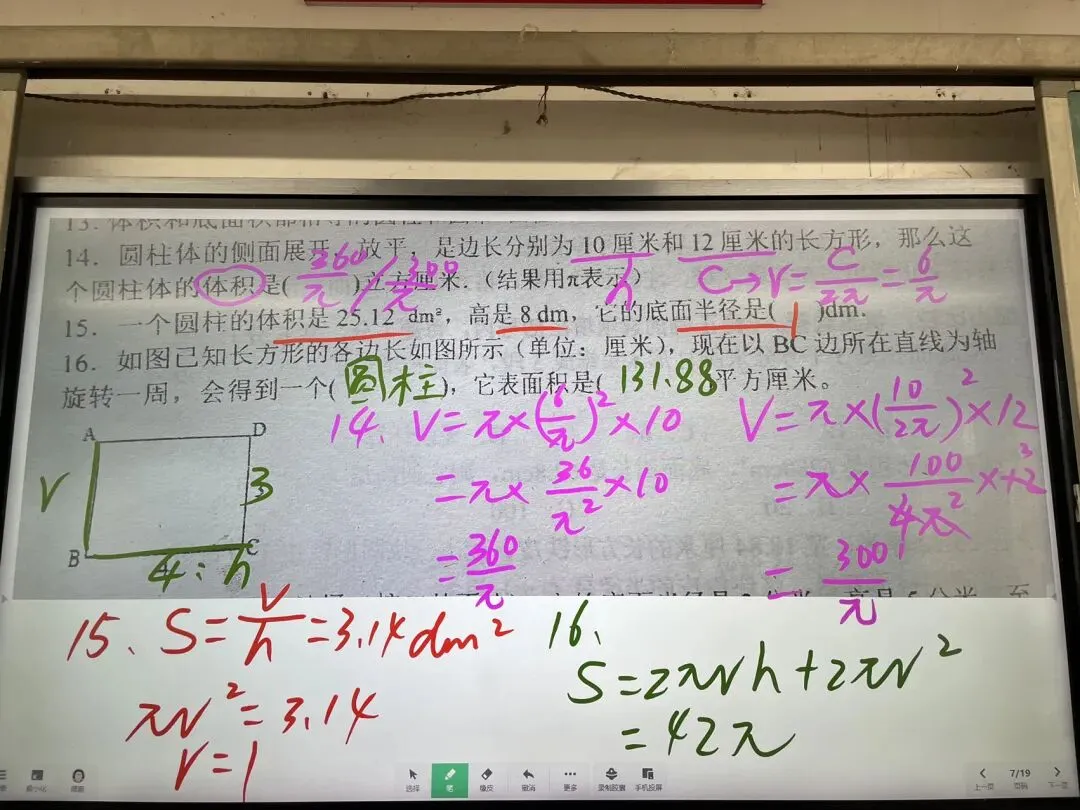 13. 体积和底面积都相等的圆柱和圆
14. 圆柱体的侧面展开,放平,是边长分别为 10 厘米和 12 厘米的长方形,那么这
个圆柱体的体积是( 360/π / 300/π )立方厘米.(结果用π表示) h C→r=C/2π=6/π
15. 一个圆柱的体积是 25.12 dm²,高是 8 dm,它的底面半径是( 1 )dm.
16. 如图已知长方形的各边长如图所示(单位:厘米),现在以 BC 边所在直线为轴
旋转一周,会得到一个(圆柱),它表面积是( 131.88平方厘米。
A D
r 3
B C
4:h
14、V=π×(6/π)²×10
=π×36/π²×10
=360/π
V=π×(10/2π)²×12
=π×100/4π²×12 3
1
=300/π
15、S=V/h=3.14dm²
πr²=3.14
r=1
16、
S=2πrh+2πr²
=42π
选择 笔 橡皮 撤消 更多 录制胶囊 手机投屏
最小化
上一页 7/19 页码 下一页